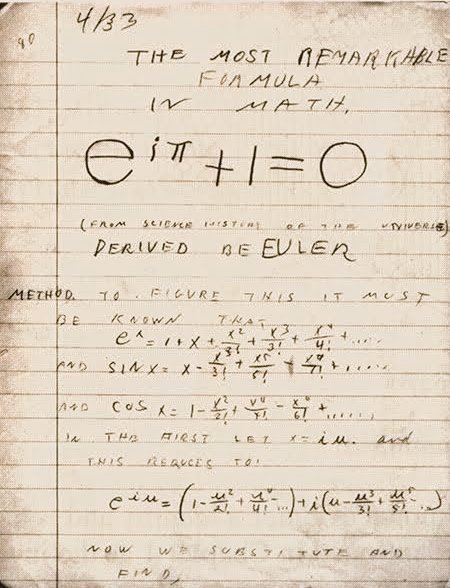 4/33
90
THE MOST REMARKABLE
FORMULA
IN MATH.
e^{iπ} + 1 = 0
(FROM SCIENCE HISTORY OF THE UNIVERSE)
DERIVED BE EULER
METHOD. TO FIGURE THIS IT MUST
BE KNOWN THAT,
e^x = 1 + x + x²/2! + x³/3! + x⁴/4! + .....
AND SIN x = x - x³/3! + x⁵/5! - x⁷/7! + .....
AND COS x = 1 - x²/2! + x⁴/4! - x⁶/6! + ......
IN THE FIRST LET x = iu. and
THIS REDUCES TO:
e^{iu} = (1 - u²/2! + u⁴/4! - ...) + i(u - u³/3! + u⁵/5! - ...)
NOW WE SUBSTITUTE AND
FIND,